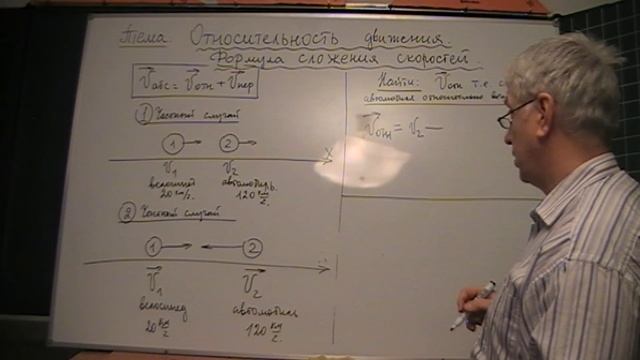 Тема: Относительность движения.
Формула сложения скоростей.
V⃗абс = V⃗отн + V⃗пер
① Частный случай
1 2
X
V1 V2
велосипед автомобиль
20 км/ч. 120 км/ч.
② Частный случай
1 2
V⃗1 V⃗2
велосипед автомобиль
20 км/ч 120 км/ч.
Найти: V⃗отн т.е. с
автомобиля относительно
V⃗отн = V2 —